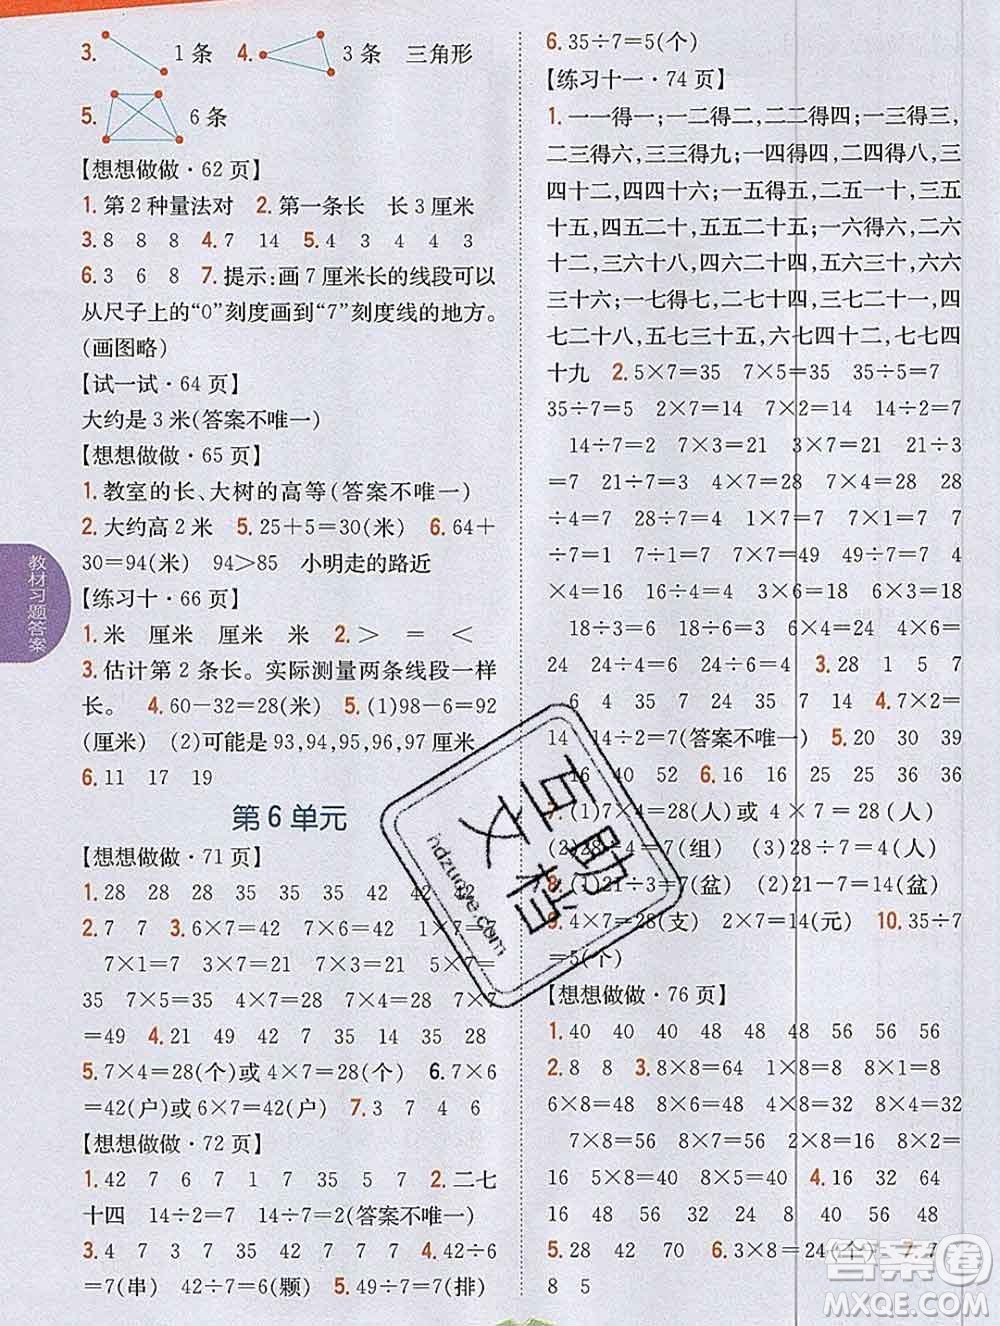 3. 1条 4. 3条 三角形
5. 6条
【想想做做·62页】
1. 第2种量法对 2. 第一条长 长3厘米
3. 8 8 8 4. 7 14 5. 4 4 4 3
6. 3 6 8 7. 提示:画7厘米长的线段可以
从尺子上的“0”刻度画到“7”刻度线的地方。
(画图略)
【试一试·64页】
大约是3米(答案不唯一)
【想想做做·65页】
1. 教室的长、大树的高等(答案不唯一)
2. 大约高2米 5. 25+5=30(米) 6. 64+
30=94(米) 94>85 小明走的路近
【练习十·66页】
1. 米 厘米 厘米 米 2. > = <
3. 估计第2条长。实际测量两条线段一样
长。 4. 60-32=28(米) 5. (1)98-6=92
(厘米) (2)可能是93,94,95,96,97厘米
6. 11 17 19
第6单元
【想想做做·71页】
1. 28 28 28 35 35 35 42 42 42
2. 7 7 3. 6×7=42 7×6=42 1×7=7
7×1=7 3×7=21 7×3=21 5×7=
35 7×5=35 4×7=28 7×4=28 7×7
=49 4. 21 49 42 7 35 14 28
5. 7×4=28(个)或4×7=28(个) 6. 7×6
=42(户)或6×7=42(户) 7. 3 7 4 6
【想想做做·72页】
1. 42 7 6 7 1 7 35 5 7 2. 二七
十四 14÷2=7 14÷7=2(答案不唯一)
3. 4 7 3 7 7 5 2 7 4. 42÷6
=7(串) 42÷7=6(颗) 5. 49÷7=7(排)
6. 35÷7=5(个)
【练习十一·74页】
1. 一一得一;一二得二,二二得四;一三得三,
二三得六,三三得九;一四得四,二四得八,三
四十二,四四十六;一五得五,二五一十,三五
十五,四五二十,五五二十五;一六得六,二六
十二,三六十八,四六二十四,五六三十,六六
三十六;一七得七,二七十四,三七二十一,四
七二十八,五七三十五,六七四十二,七七四
十九 2. 5×7=35 7×5=35 35÷5=7
35÷7=5 2×7=14 7×2=14 14÷2=7
14÷7=2 7×3=21 3×7=21 21÷3
=7 21÷7=3 4×7=28 7×4=28 28
÷4=7 28÷7=4 1×7=7 7×1=7 7
÷1=7 7÷7=1 7×7=49 49÷7=7
6×3=18 3×6=18 18÷3=6
18÷6=3 6×4=24 4×6=
24 24÷6=4 24÷4=6 3. 28 1 5 7
6 4 35 7 24 35 7 14 4. 7×2=
14 14÷2=7(答案不唯一) 5. 20 30 39
16 40 52 6. 16 20 25 36 36
7. (1)7×4=28(人)或 4×7=28(人)
(2)28÷4=7(组) (3)28÷7=4(人)
8. (1)21÷3=7(盆) (2)21-7=14(盆)
9. 4×7=28(支) 2×7=14(元) 10. 35÷7
=5(个)
【想想做做·76页】
1. 40 40 40 48 48 48 56 56 56
2. 8 8 3. 8×8=64 1×8=8 8×1=8
6×8=48 8×6=48 4×8=32 8×4=32
7×8=56 8×7=56 2×8=16 8×2=
16 5×8=40 8×5=40 4. 16 64 40
16 48 56 32 24 8 40 56 64
5. 28 42 70 6. 3×8=24(个) 7. 7
8 5
教材习题答案
互助文档
hdzuoye.com
答案圈
MXQE.COM